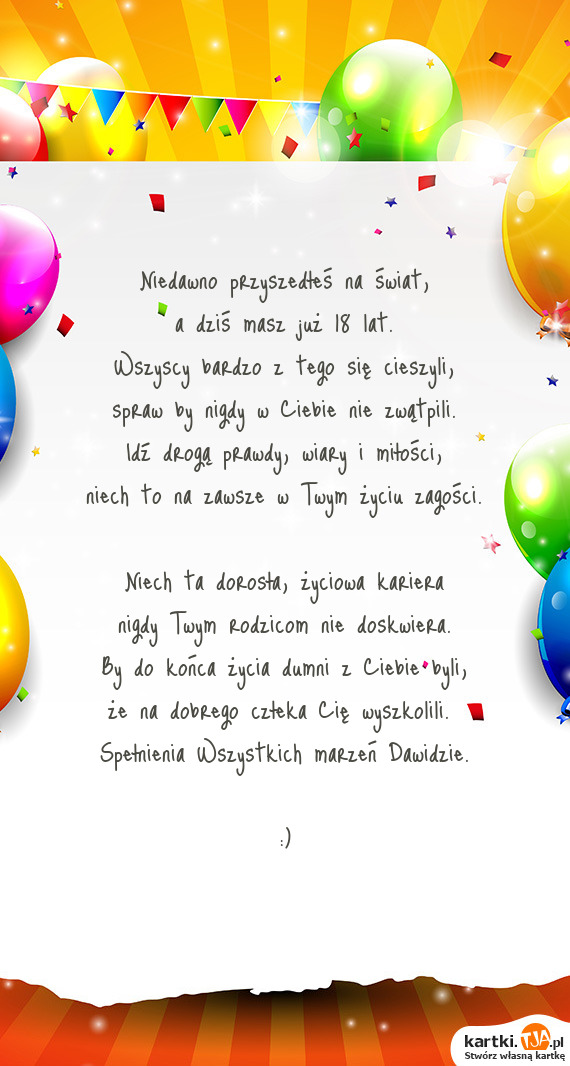 Niedawno przyszedłeś na świat,
a dziś masz już 18 lat.
Wszyscy bardzo z tego się cieszyli,
spraw by nigdy w Ciebie nie zwątpili.
Idź drogą prawdy, wiary i miłości,
niech to na zawsze w Twym życiu zagości.
Niech ta dorosła, życiowa kariera
nigdy Twym rodzicom nie doskwiera.
By do końca życia dumni z Ciebie byli,
że na dobrego człeka Cię wyszkolili.
Spełnienia Wszystkich marzeń Dawidzie.
:)
kartki.TJA.pl
Stwórz własną kartkę